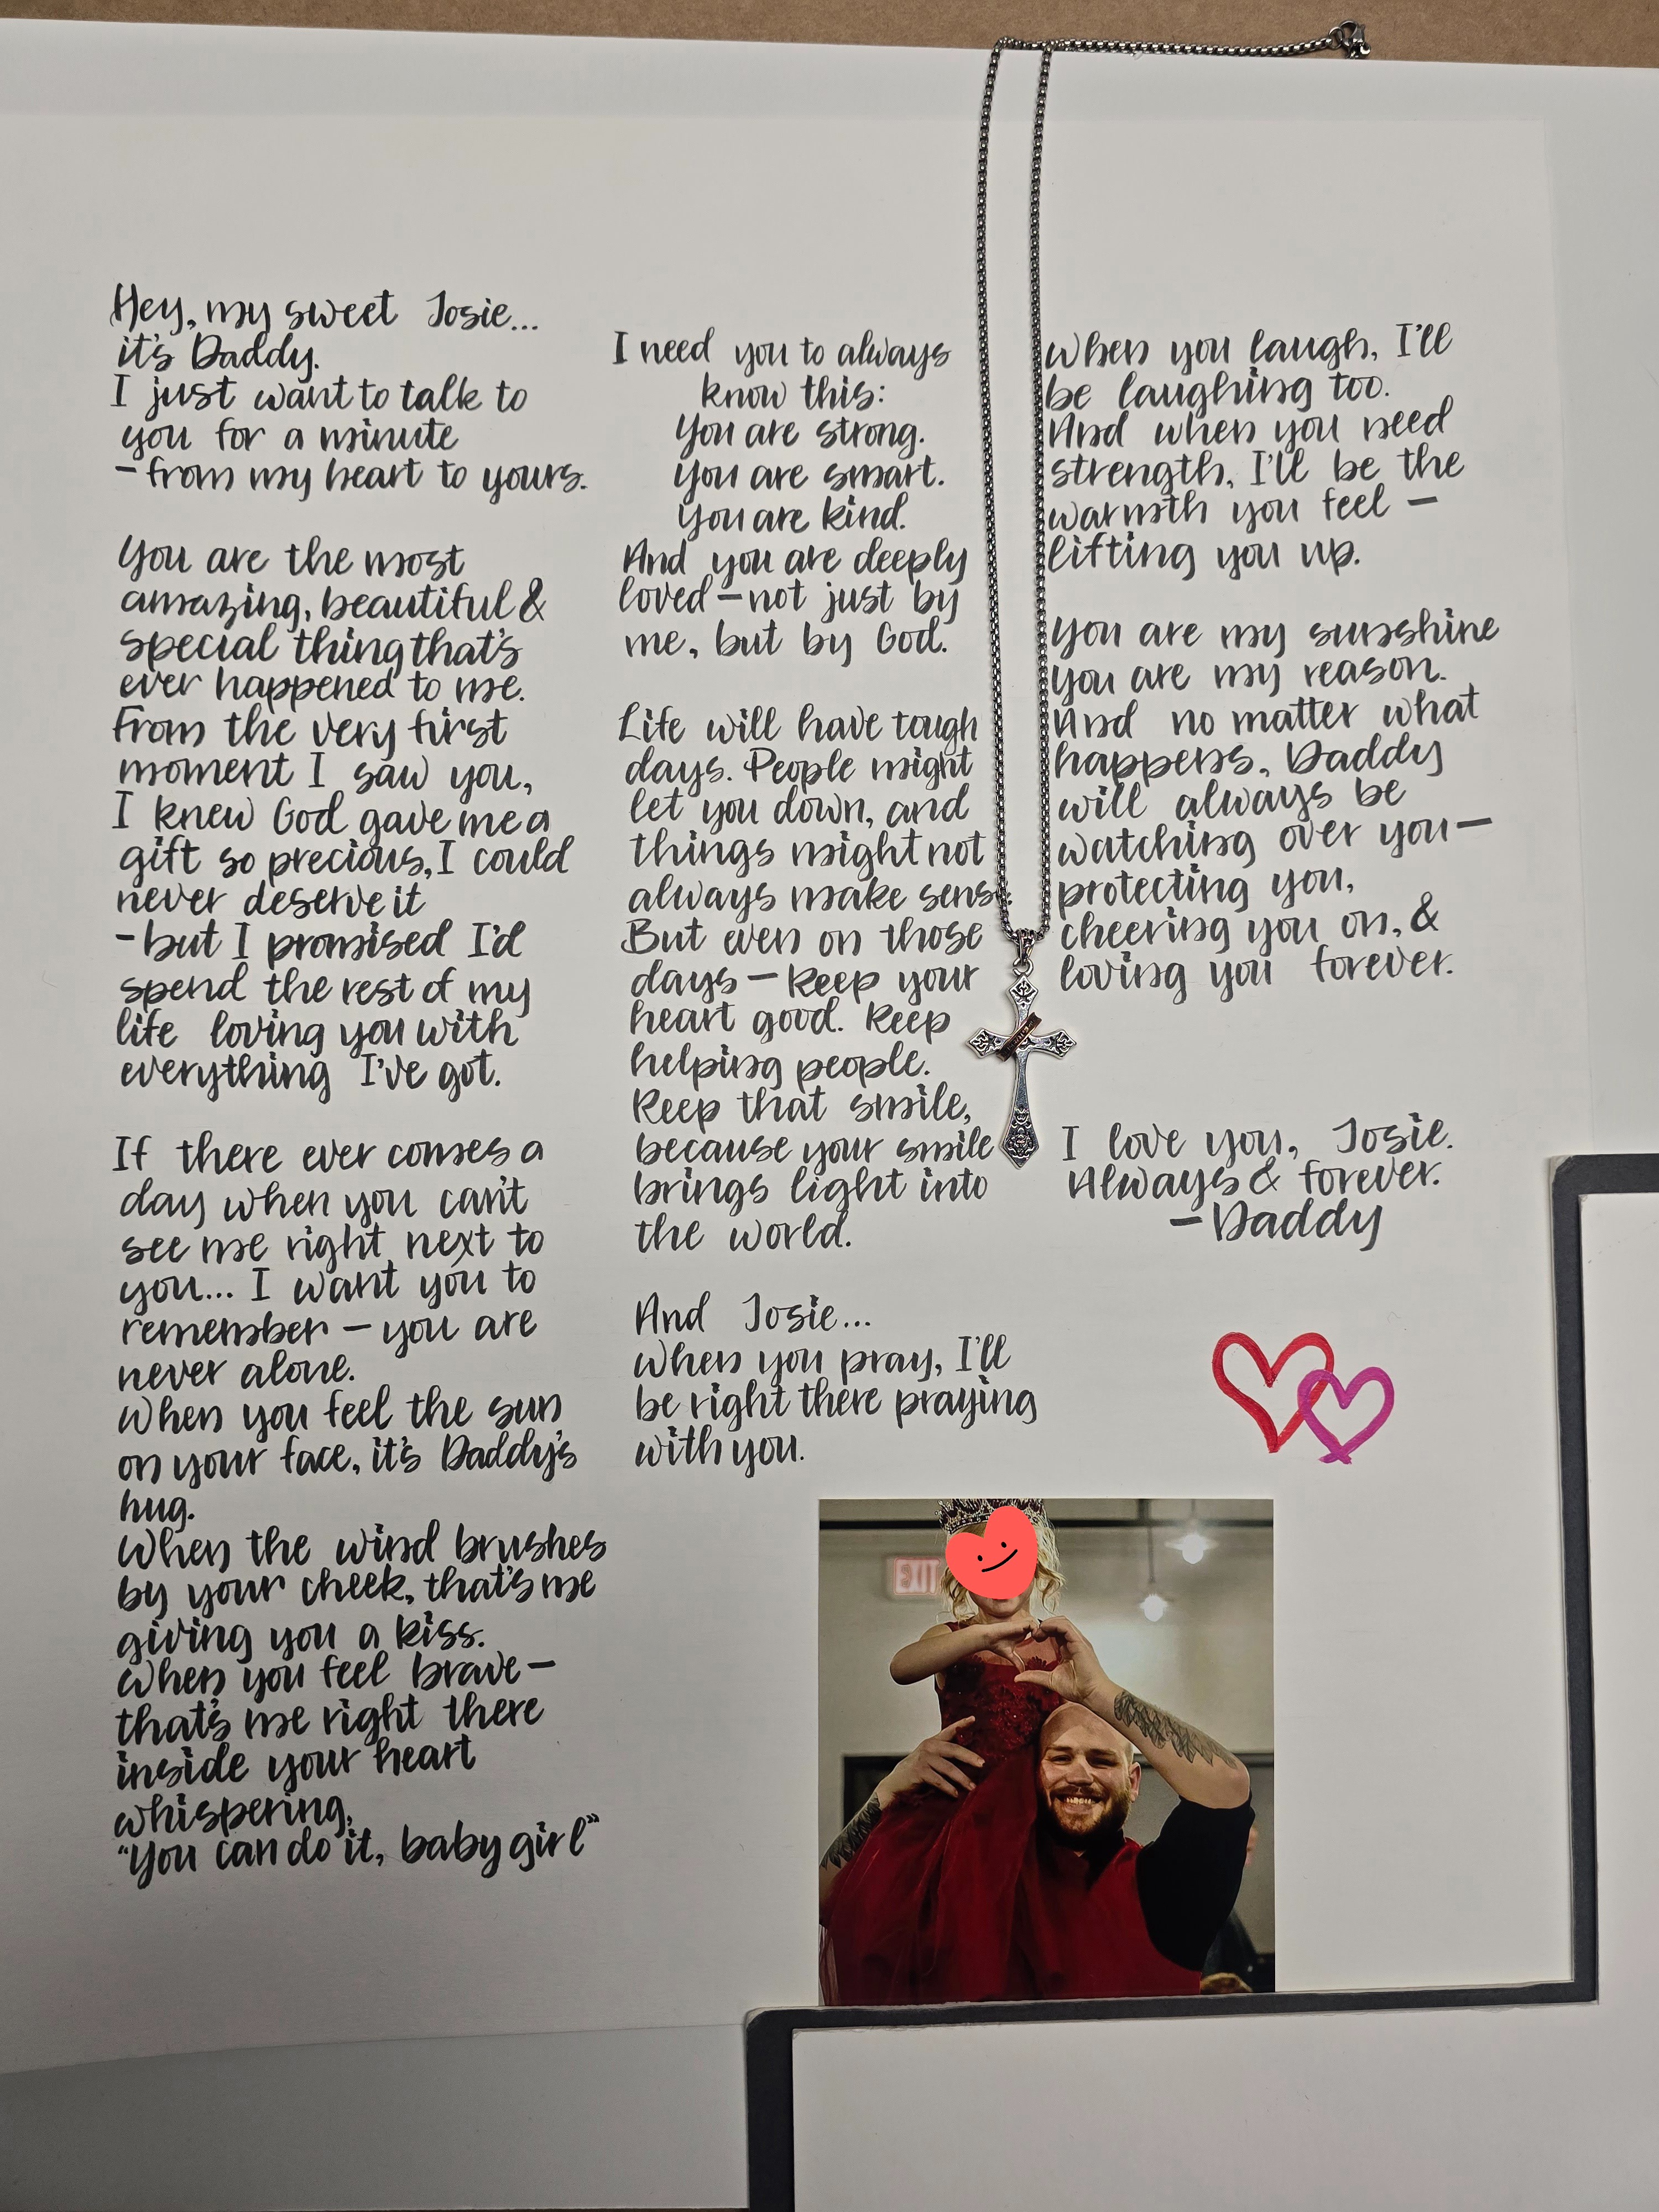 Hey, my sweet Josie...
it's Daddy.
I just want to talk to
you for a minute
- from my heart to yours.
You are the most
amazing, beautiful &
special thing that's
ever happened to me.
From the very first
moment I saw you,
I knew God gave me a
gift so precious, I could
never deserve it
- but I promised I'd
spend the rest of my
life loving you with
everything I've got.
If there ever comes a
day when you can't
see me right next to
you... I want you to
remember - you are
never alone.
When you feel the sun
on your face, it's Daddy's
hug.
When the wind brushes
by your cheek, that's me
giving you a kiss.
When you feel brave -
that's me right there
inside your heart
whispering,
"You can do it, baby girl"
I need you to always
know this:
You are strong.
You are smart.
You are kind.
And you are deeply
loved - not just by
me, but by God.
Life will have tough
days. People might
let you down, and
things might not
always make sense.
But even on those
days - keep your
heart good. Keep
helping people.
Keep that smile,
because your smile
brings light into
the world.
And Josie...
When you pray, I'll
be right there praying
with you.
When you laugh, I'll
be laughing too.
And when you need
strength, I'll be the
warmth you feel -
lifting you up.
You are my sunshine
you are my reason.
And no matter what
happens, Daddy
will always be
watching over you -
protecting you,
cheering you on, &
loving you forever.
I love you, Josie.
Always & forever.
- Daddy
EXIT